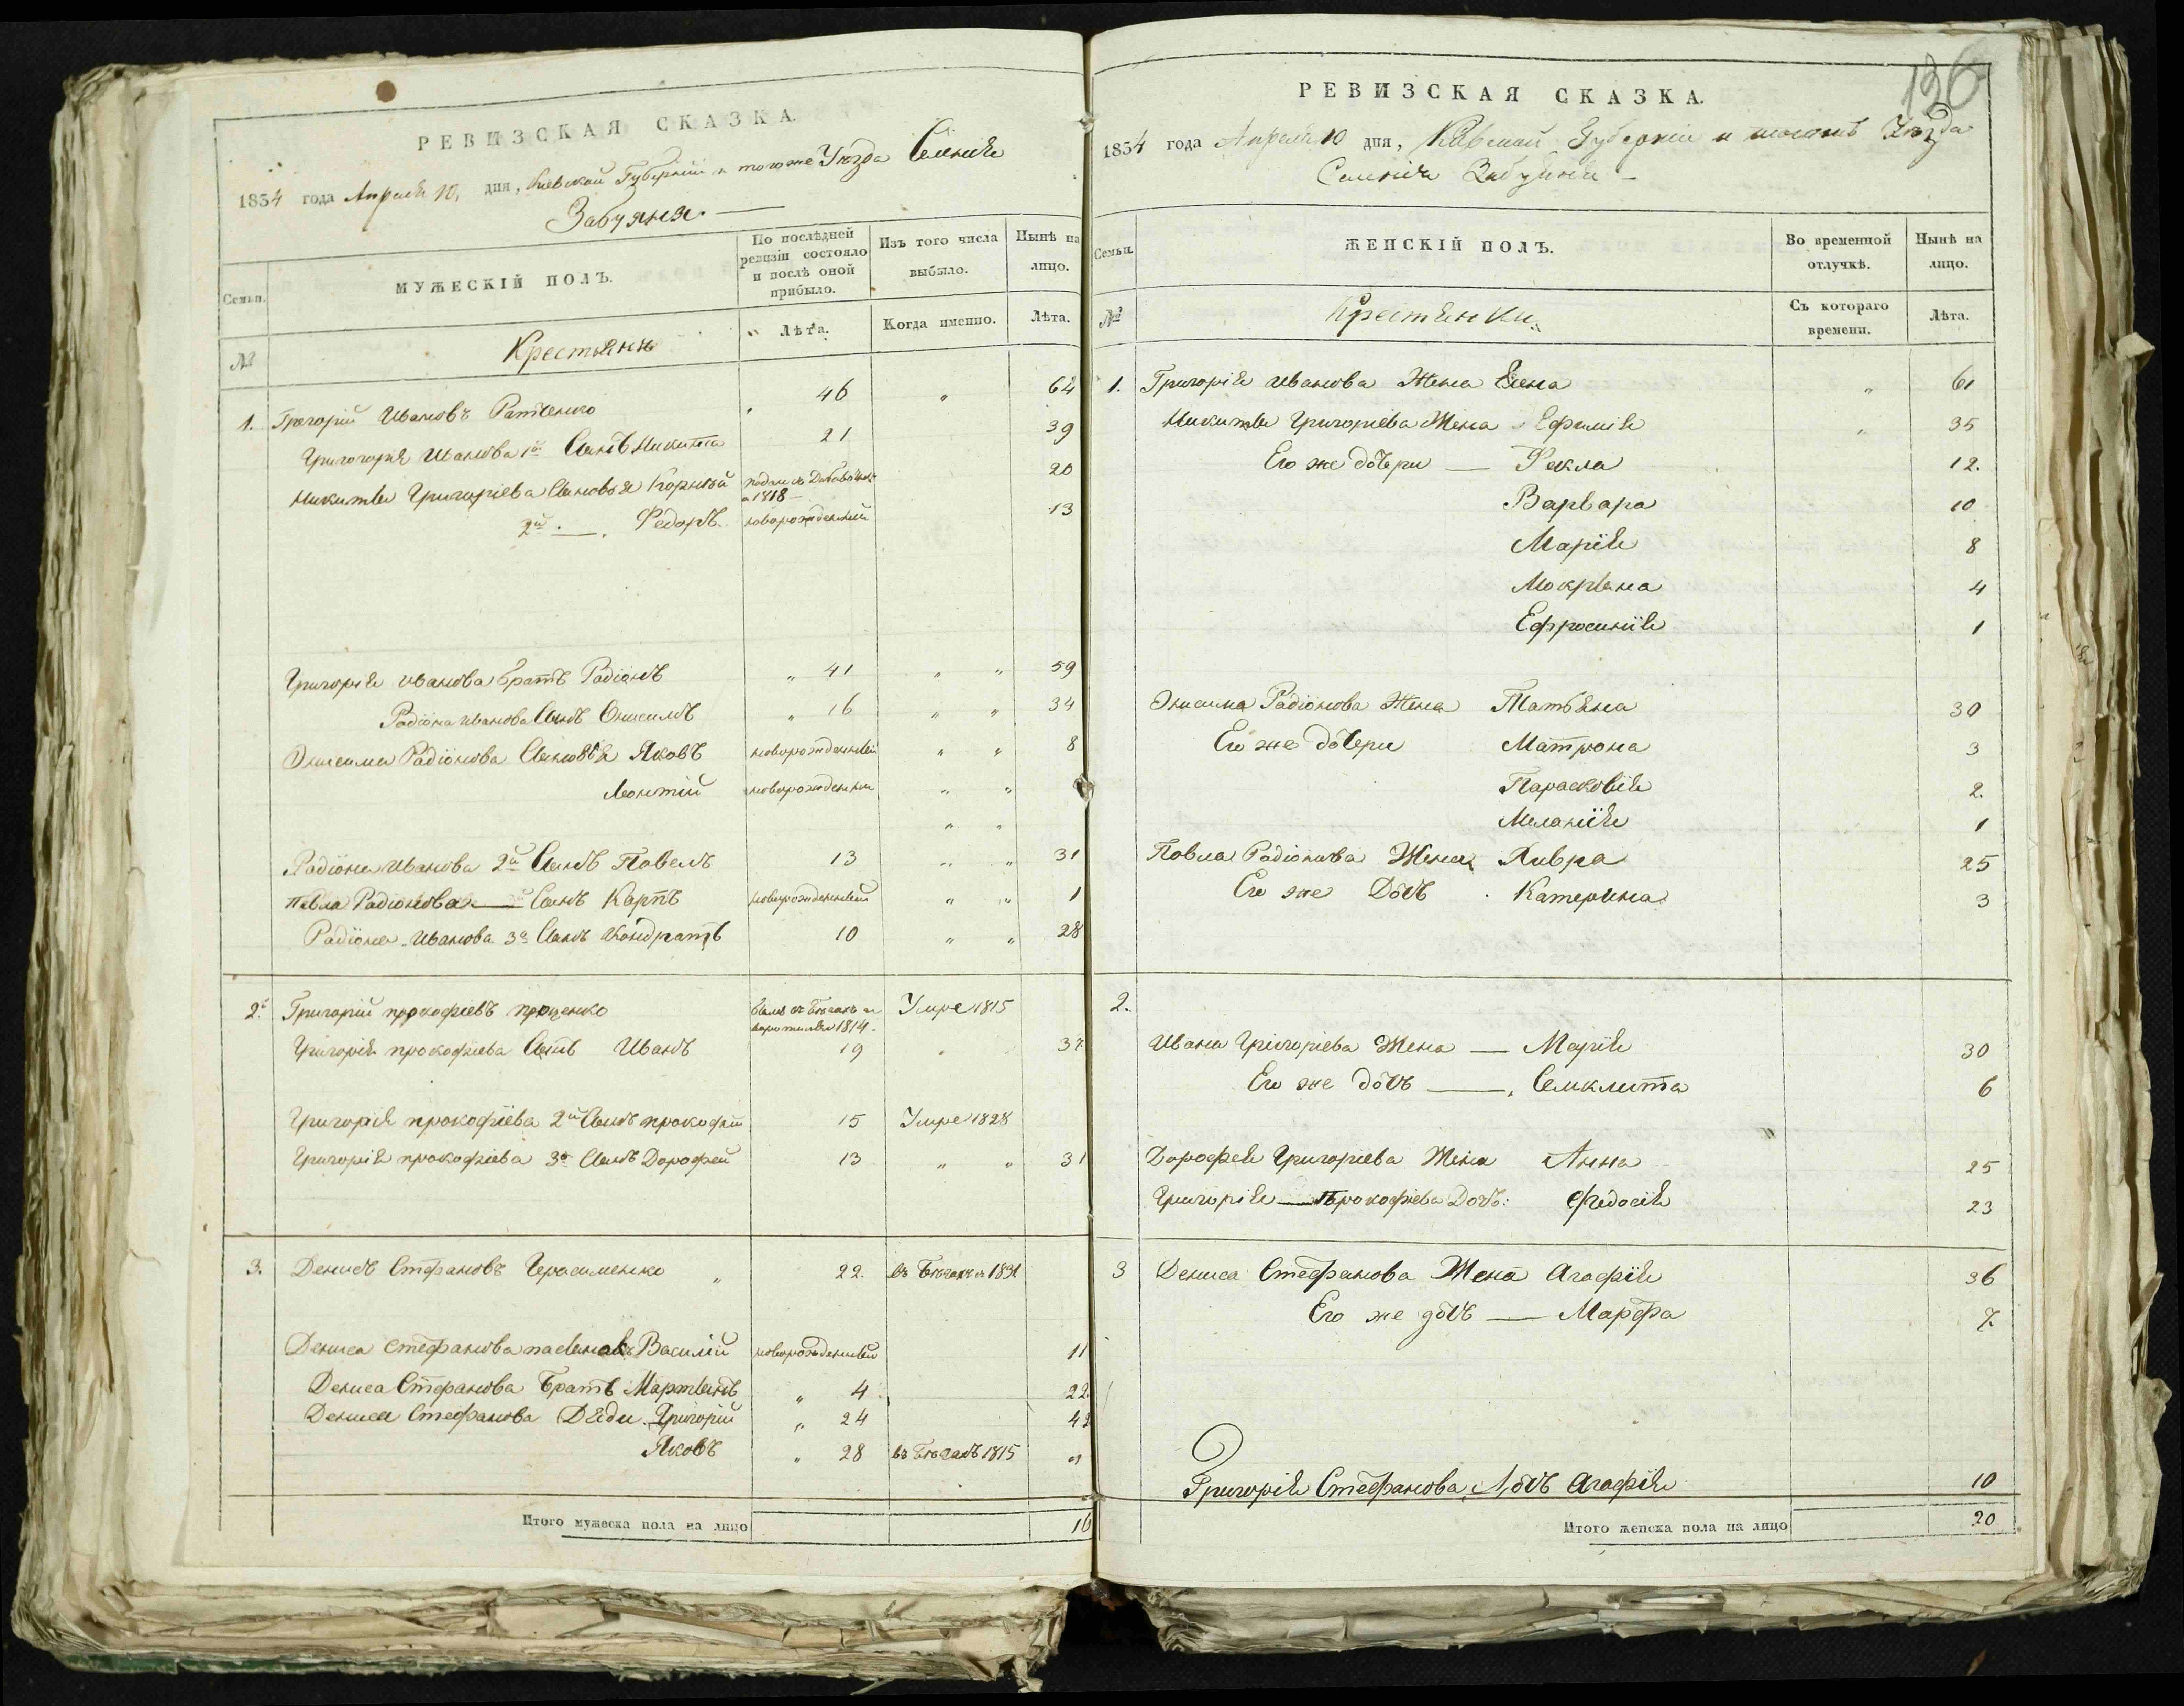 РЕВИЗСКАЯ СКАЗКА.
1834 года Апреля 10, дня, Киевской Губернїи и тогоже Уезда Селенїя
Забуяня. —
Семьи.
МУЖЕСКІЙ ПОЛЪ.
По послѣдней ревизіи состояло и послѣ оной прибыло.
Изъ того числа выбыло.
Нынѣ на лицо.
№
Крестьянъ
Лѣта.
Когда именно.
Лѣта.
1. Григорїй Ивановъ 46 " 64
Григорїя Иванова 1й Сынъ Никита 21 39
Никиты Григорїева Сыновья Корнїй 1818 20
2й — Федоръ новорожденный 13
Григорія Иванова братъ Радїонъ " 41 " " 59
Радїона Иванова Сынъ Онисимъ " 16 " " 34
Онисима Радїонова Сыновья Яковъ новорожденный " " 8
Леонтїй новорожденный " "
" "
Радїона Иванова 2й Сынъ Павелъ 13 " " 31
Павла Радїонова — Сынъ Карпъ новорожденный " " 1
Радїона Иванова 3й Сынъ Кондратъ 10 " " 28
2. Григорїй прокофїевъ проценко 1814 Умре 1815
Григорїя прокофїева Сынъ Иванъ 19 37
Григорїя прокофїева 2й Сынъ прокофїй 15 Умре 1828
Григорїя прокофїева 3й Сынъ Дорофей 13 " " 31
3. Денисъ Стефановъ Герасименко " 22. въ Бегахъ с 1831
Дениса Стефанова пасынокъ Василїй новорожденный 11
Дениса Стефанова Братъ Мартынъ " 4 22
Дениса Стефанова Дяди Григорїй " 24 42
Яковъ " 28 въ Бегахъ 1815 "
Итого мужеска пола на лицо 16
136
РЕВИЗСКАЯ СКАЗКА.
1834 года Апреля 10 дня, Киевской Губернїи и тогожъ Уезда
Селенїя Забуяня —
Семьи.
ЖЕНСКІЙ ПОЛЪ.
Во временной отлучкѣ.
Нынѣ на лицо.
№
Крестьянки
Съ котораго времени.
Лѣта.
1. Григорїя Иванова Жена Елена " 61
Никиты Григорїева Жена Ефимїя " 35
Его же дочери — Фекла 12.
Варвара 10
Марїя 8
Мокрына 4
Ефросинїя 1
Онисима Радїонова Жена Татьяна 30
Его же дочери Матрона 3
Парасковїя 2.
Меланїя 1
Павла Радїонова Жена 25
Его же Дочь Катерина 3
2.
Ивана Григорїева Жена — Марїя 30
Его же дочь — 6
Дорофея Григорїева Жена Анна 25
Григорїя — Прокофїева Дочь: Федосїя 23
3 Дениса Стефанова Жена Агафїя 36
Его же дочь — Марфа 7.
Григорїя Стефанова Дочь Агафїя 10
Итого женска пола на лицо 20